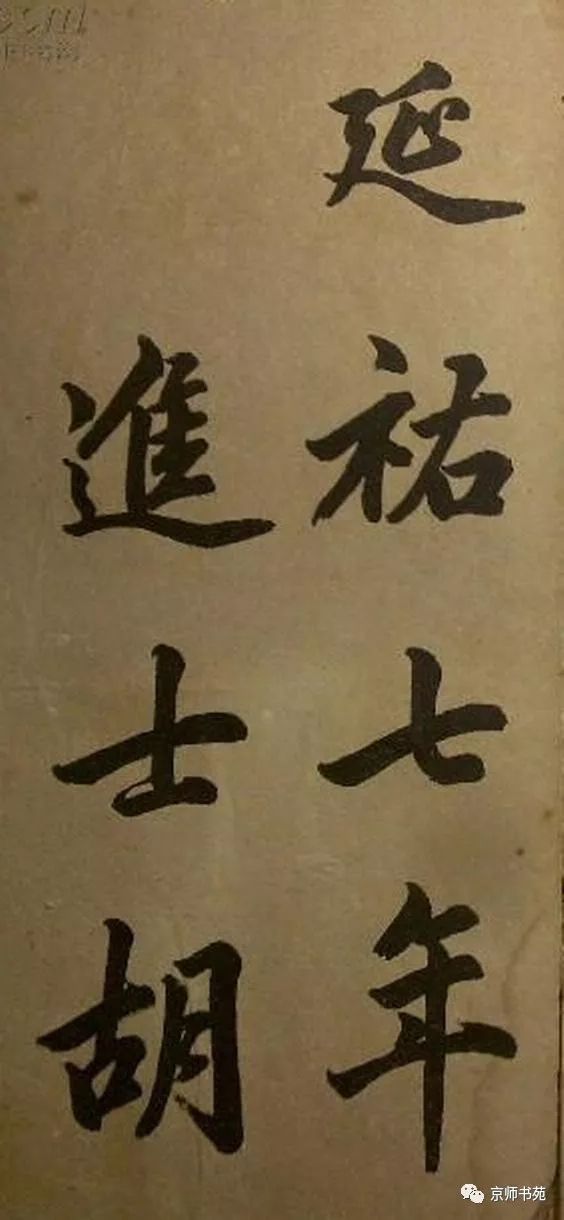 延祐七年
進士胡
京师书苑